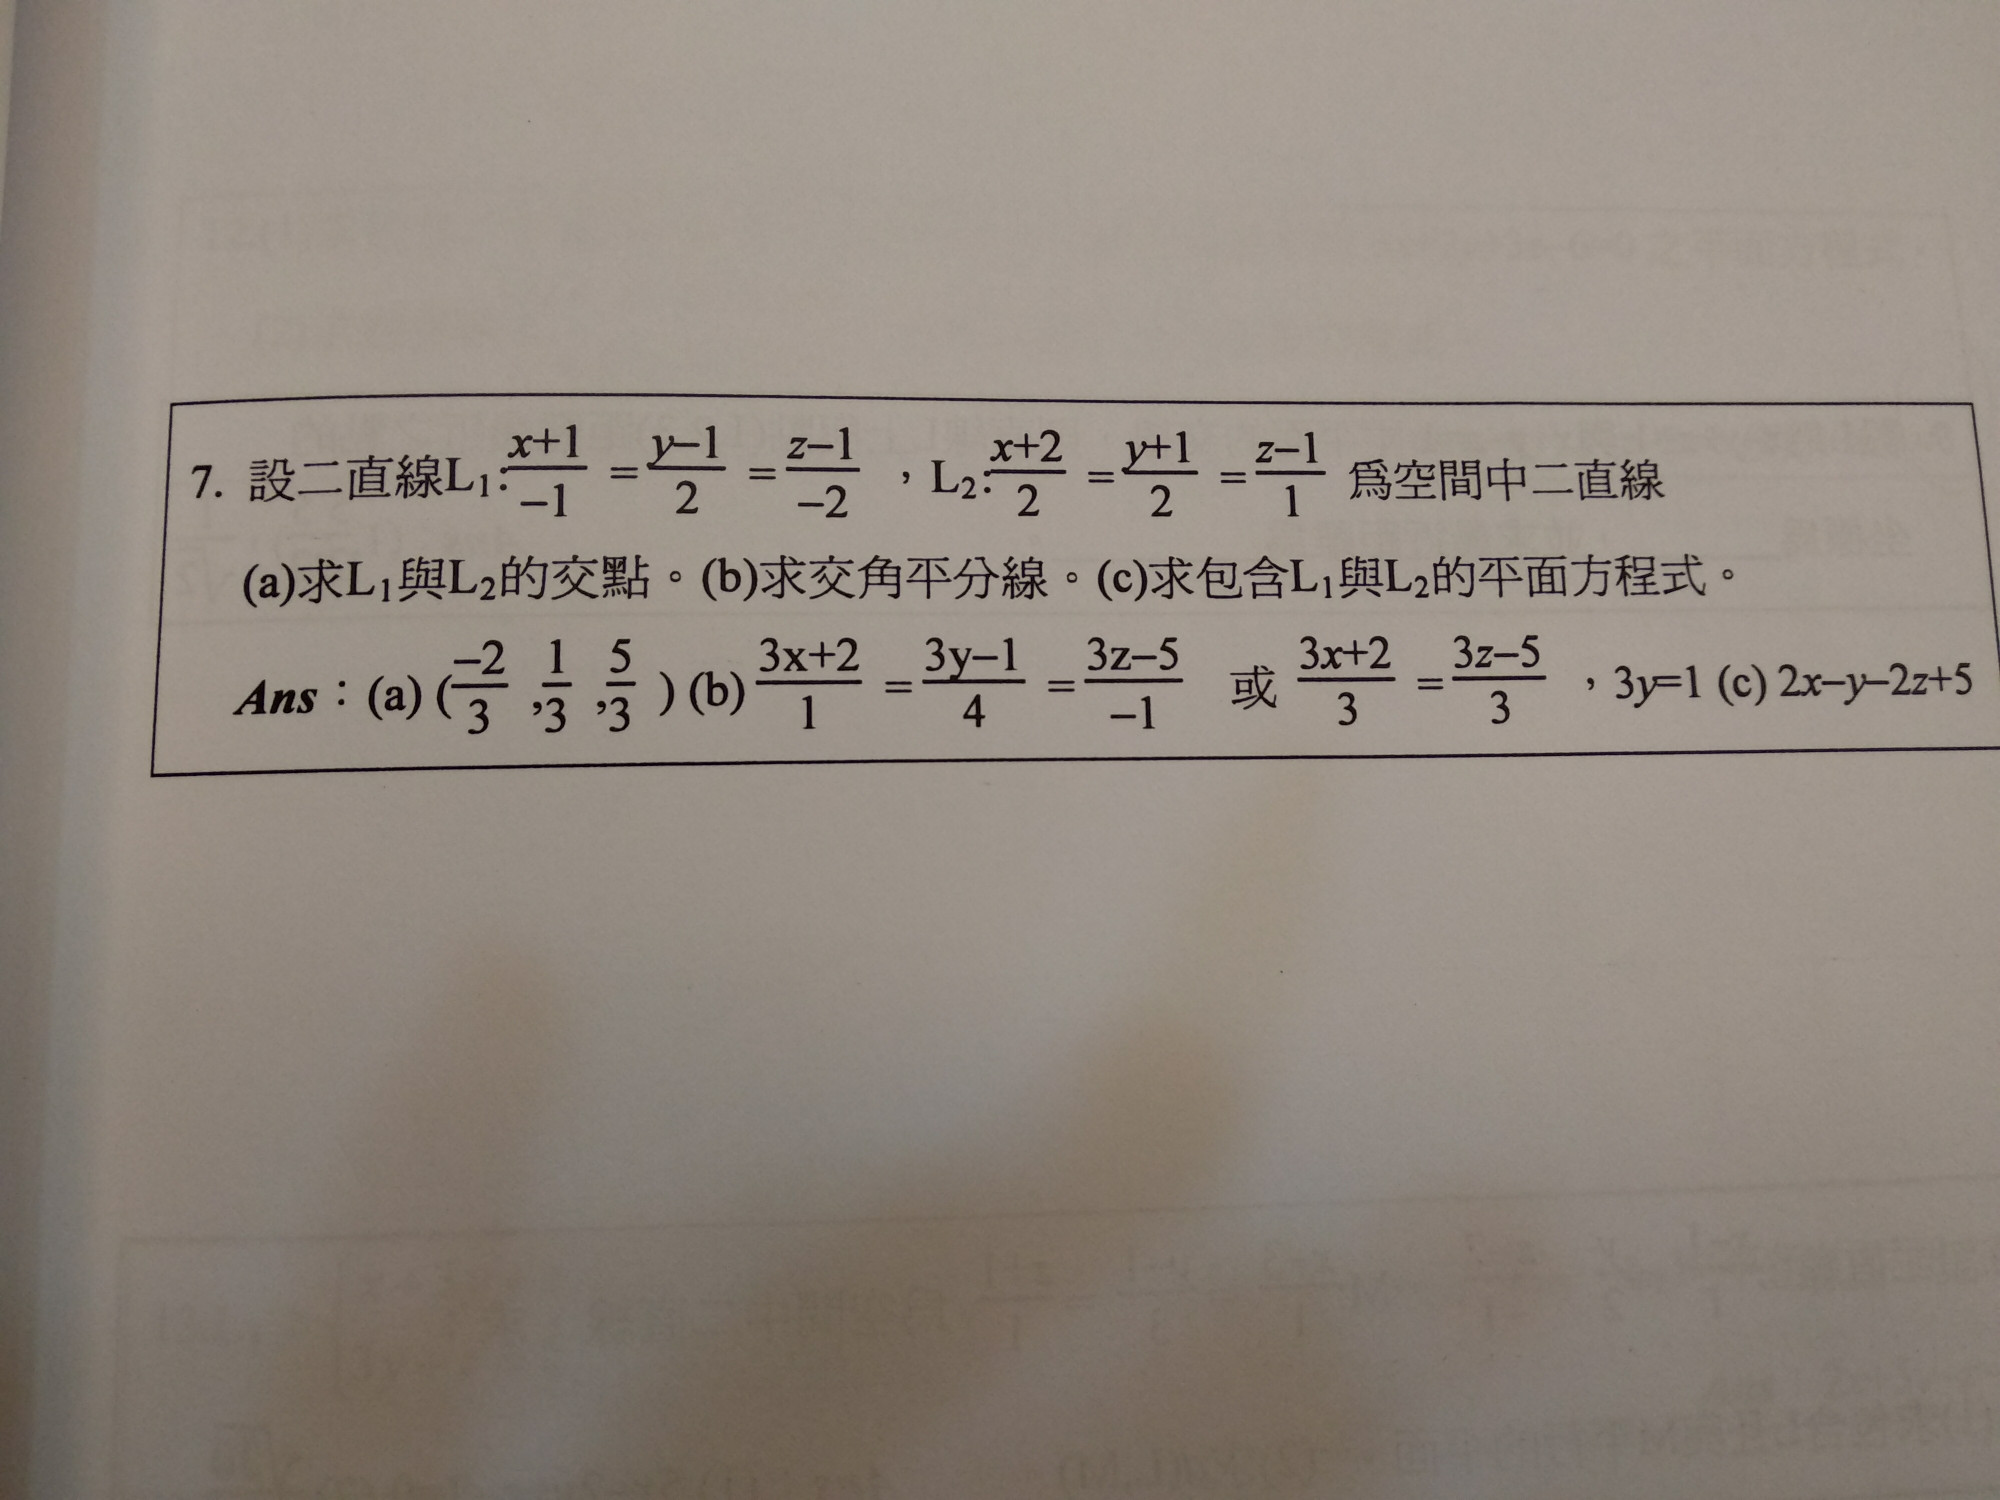 7. 設二直線L₁: (x+1)/(-1) = (y-1)/2 = (z-1)/(-2) ，L₂: (x+2)/2 = (y+1)/2 = (z-1)/1 爲空間中二直線
(a)求L₁與L₂的交點。(b)求交角平分線。(c)求包含L₁與L₂的平面方程式。
Ans：(a) (-2/3, 1/3, 5/3) (b) (3x+2)/1 = (3y-1)/4 = (3z-5)/(-1) 或 (3x+2)/3 = (3z-5)/3 ，3y=1 (c) 2x-y-2z+5